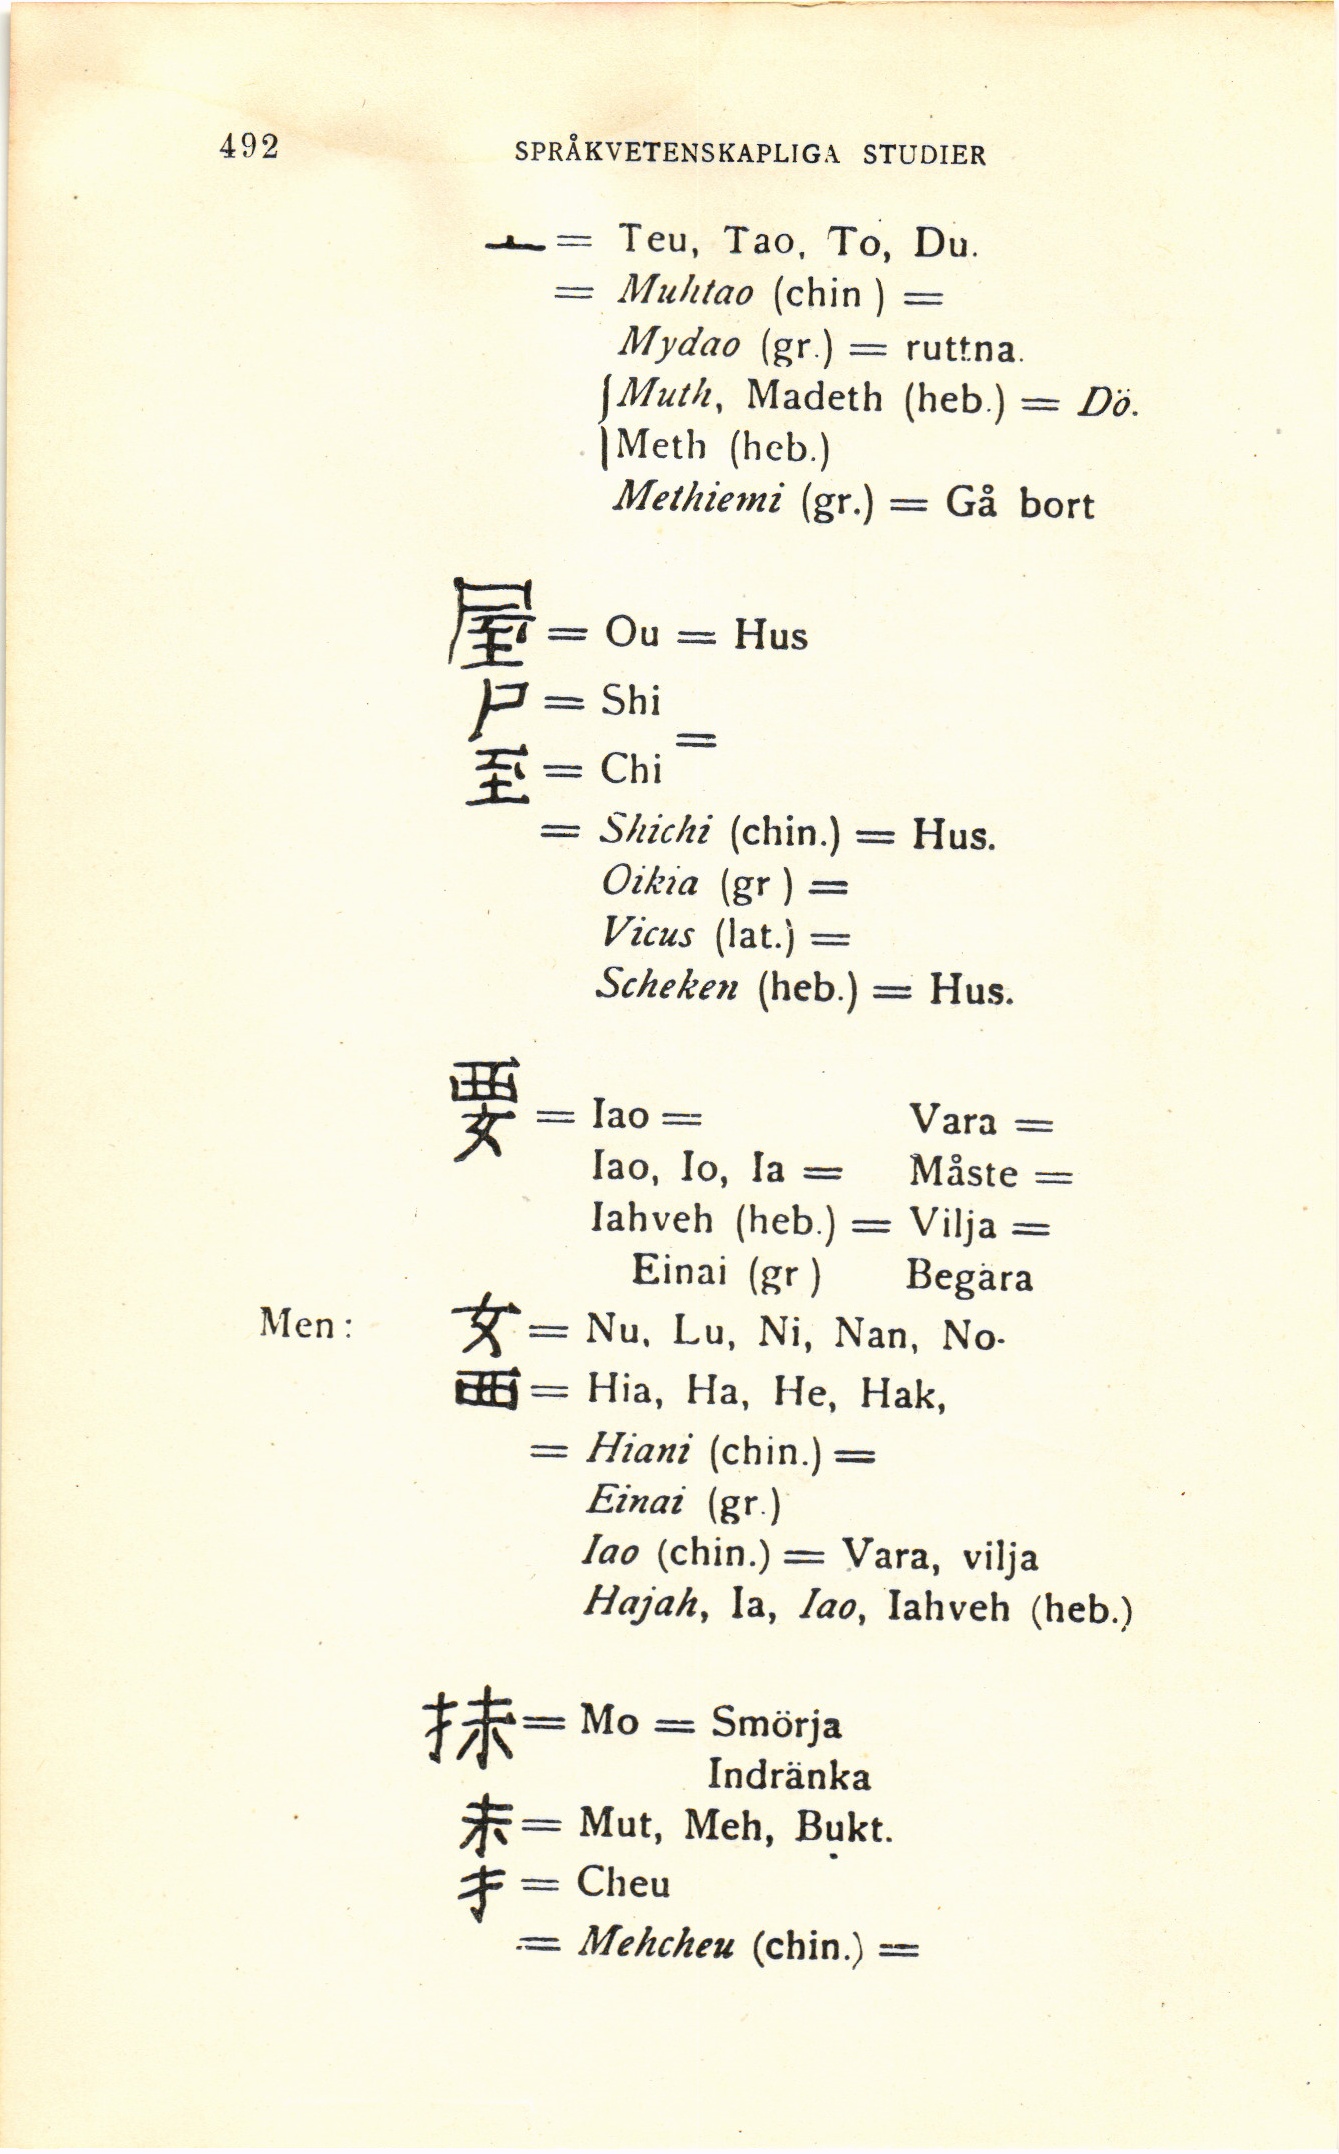 492 SPRÅKVETENSKAPLIGA STUDIER
亠 = Teu, Tao, To, Du.
= Muhtao (chin ) =
Mydao (gr.) = ruttna.
Muth, Madeth (heb.) = Dö.
Meth (heb.)
Methiemi (gr.) = Gå bort
屋 = Ou = Hus
尸 = Shi
=
至 = Chi
= Shichi (chin.) = Hus.
Oikia (gr ) =
Vicus (lat.) =
Scheken (heb.) = Hus.
要 = Iao = Vara =
Iao, Io, Ia = Måste =
Iahveh (heb.) = Vilja =
Einai (gr ) Begära
Men: 女 = Nu, Lu, Ni, Nan, No-
襾 = Hia, Ha, He, Hak,
= Hiani (chin.) =
Einai (gr.)
Iao (chin.) = Vara, vilja
Hajah, Ia, Iao, Iahveh (heb.)
抹 = Mo = Smörja
Indränka
末 = Mut, Meh, Bukt.
手 = Cheu
= Mehcheu (chin.) =